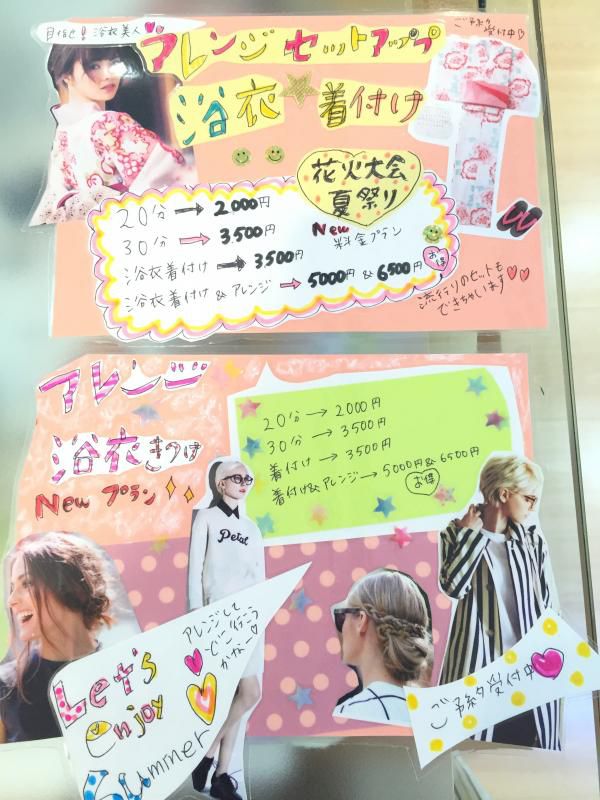 目指せ!浴衣美人
アレンジセットアップ
ご予約
受付中
浴衣着付け
花火大会
夏祭り
New
料金プラン
20分→2000円
30分→3,500円
浴衣着付け→3,500円
浴衣着付け&アレンジ→5000円&6500円
お得
流行りのセットも
できちゃいます
アレンジ
浴衣きつけ
New プラン
20分→2000円
30分→3500円
着付け→3500円
着付け&アレンジ→5000円&6500円
お得
Petal
アレンジして
どこ行こう
かなー
Let's
enjoy
Summer
ご予約受付中